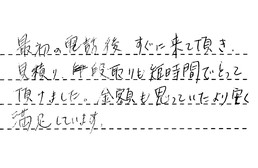 最初の電話後 すぐに来て頂き、
見積り 段取りも短時間でとって
頂けました。金額も思っていたより安く
満足しています。